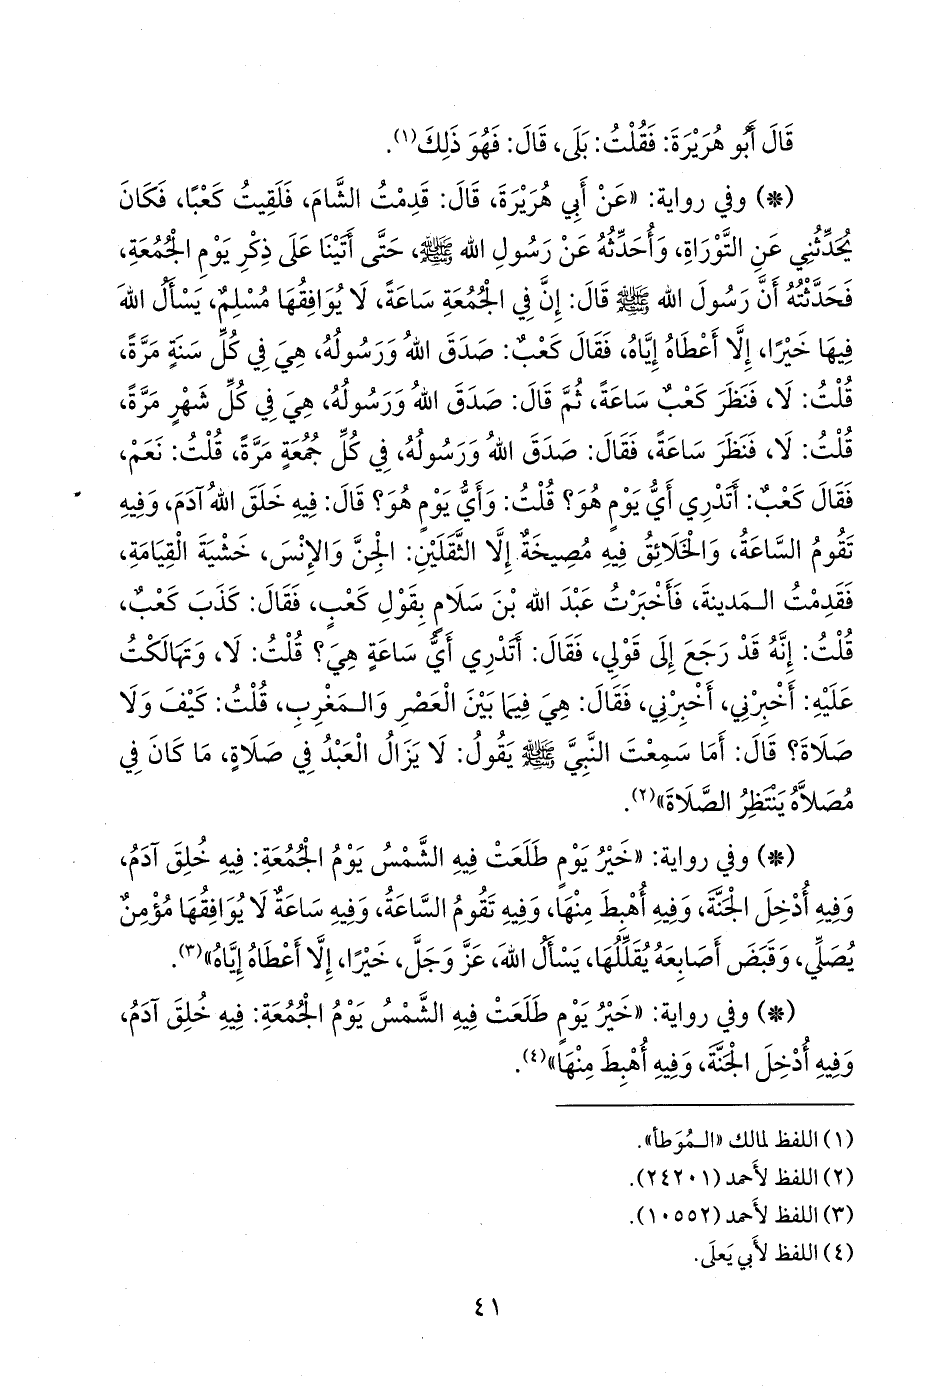 قَالَ أَبُو هُرَيْرَةَ: فَقُلْتُ: بَلَى، قَالَ: فَهُوَ ذَلِكَ(١).
(*) وفي رواية: «عَنْ أَبِي هُرَيْرَةَ، قَالَ: قَدِمْتُ الشَّامَ، فَلَقِيتُ كَعْبًا، فَكَانَ
يُحَدِّثُنِي عَنِ التَّوْرَاةِ، وَأُحَدِّثُهُ عَنْ رَسُولِ الله ﷺ، حَتَّى أَتَيْنَا عَلَى ذِكْرِ يَوْمِ الْجُمُعَةِ،
فَحَدَّثْتُهُ أَنَّ رَسُولَ الله ﷺ قَالَ: إِنَّ فِي الْجُمُعَةِ سَاعَةً، لَا يُوَافِقُهَا مُسْلِمٌ، يَسْأَلُ اللهَ
فِيهَا خَيْرًا، إِلَّا أَعْطَاهُ إِيَّاهُ، فَقَالَ كَعْبٌ: صَدَقَ اللهُ وَرَسُولُهُ، هِيَ فِي كُلِّ سَنَةٍ مَرَّةً،
قُلْتُ: لَا، فَنَظَرَ كَعْبٌ سَاعَةً، ثُمَّ قَالَ: صَدَقَ اللهُ وَرَسُولُهُ، هِيَ فِي كُلِّ شَهْرٍ مَرَّةً،
قُلْتُ: لَا، فَنَظَرَ سَاعَةً، فَقَالَ: صَدَقَ اللهُ وَرَسُولُهُ، فِي كُلِّ جُمُعَةٍ مَرَّةً، قُلْتُ: نَعَمْ،
فَقَالَ كَعْبٌ: أَتَدْرِي أَيُّ يَوْمٍ هُوَ؟ قُلْتُ: وَأَيُّ يَوْمٍ هُوَ؟ قَالَ: فِيهِ خَلَقَ اللهُ آدَمَ، وَفِيهِ
تَقُومُ السَّاعَةُ، وَالْخَلَائِقُ فِيهِ مُصِيخَةٌ إِلَّا الثَّقَلَيْنِ: الْجِنَّ وَالإِنْسَ، خَشْيَةَ الْقِيَامَةِ،
فَقَدِمْتُ الـمَدِينةَ، فَأَخْبَرْتُ عَبْدَ الله بْنَ سَلَامٍ بِقَوْلِ كَعْبٍ، فَقَالَ: كَذَبَ كَعْبٌ،
قُلْتُ: إِنَّهُ قَدْ رَجَعَ إِلَى قَوْلِي، فَقَالَ: أَتَدْرِي أَيُّ سَاعَةٍ هِيَ؟ قُلْتُ: لَا، وَتَهَالَكْتُ
عَلَيْهِ: أَخْبِرْنِي، أَخْبِرْنِي، فَقَالَ: هِيَ فِيمَا بَيْنَ الْعَصْرِ وَالـمَغْرِبِ، قُلْتُ: كَيْفَ وَلَا
صَلَاةَ؟ قَالَ: أَمَا سَمِعْتَ النَّبِيَّ ﷺ يَقُولُ: لَا يَزَالُ الْعَبْدُ فِي صَلَاةٍ، مَا كَانَ فِي
مُصَلَّاهُ يَنْتَظِرُ الصَّلَاةَ»(٢).
(*) وفي رواية: «خَيْرُ يَوْمٍ طَلَعَتْ فِيهِ الشَّمْسُ يَوْمُ الْجُمُعَةِ: فِيهِ خُلِقَ آدَمُ،
وَفِيهِ أُدْخِلَ الْجَنَّةَ، وَفِيهِ أُهْبِطَ مِنْهَا، وَفِيهِ تَقُومُ السَّاعَةُ، وَفِيهِ سَاعَةٌ لَا يُوَافِقُهَا مُؤْمِنٌ
يُصَلِّي، وَقَبَضَ أَصَابِعَهُ يُقَلِّلُهَا، يَسْأَلُ اللهَ، عَزَّ وَجَلَّ، خَيْرًا، إِلَّا أَعْطَاهُ إِيَّاهُ»(٣).
(*) وفي رواية: «خَيْرُ يَوْمٍ طَلَعَتْ فِيهِ الشَّمْسُ يَوْمُ الْجُمُعَةِ: فِيهِ خُلِقَ آدَمُ،
وَفِيهِ أُدْخِلَ الْجَنَّةَ، وَفِيهِ أُهْبِطَ مِنْهَا»(٤).
(١) اللفظ لمالك «الـمُوَطأ».
(٢) اللفظ لأَحمد (٢٤٢٠١).
(٣) اللفظ لأَحمد (١٠٥٥٢).
(٤) اللفظ لأَبي يَعلَى.
٤١